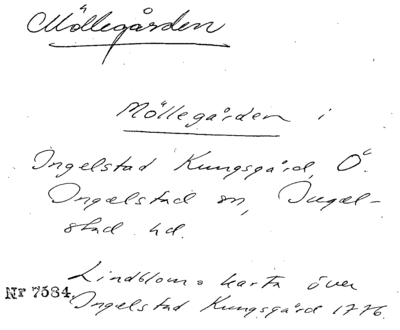 Möllegården
Möllegården i
Ingelstad Kungsgård, Ö.
Ingelstad sn, Ingel-
stad hd.
Lindbloms karta över
Nr 7584. Ingelstad Kungsgård 1776.